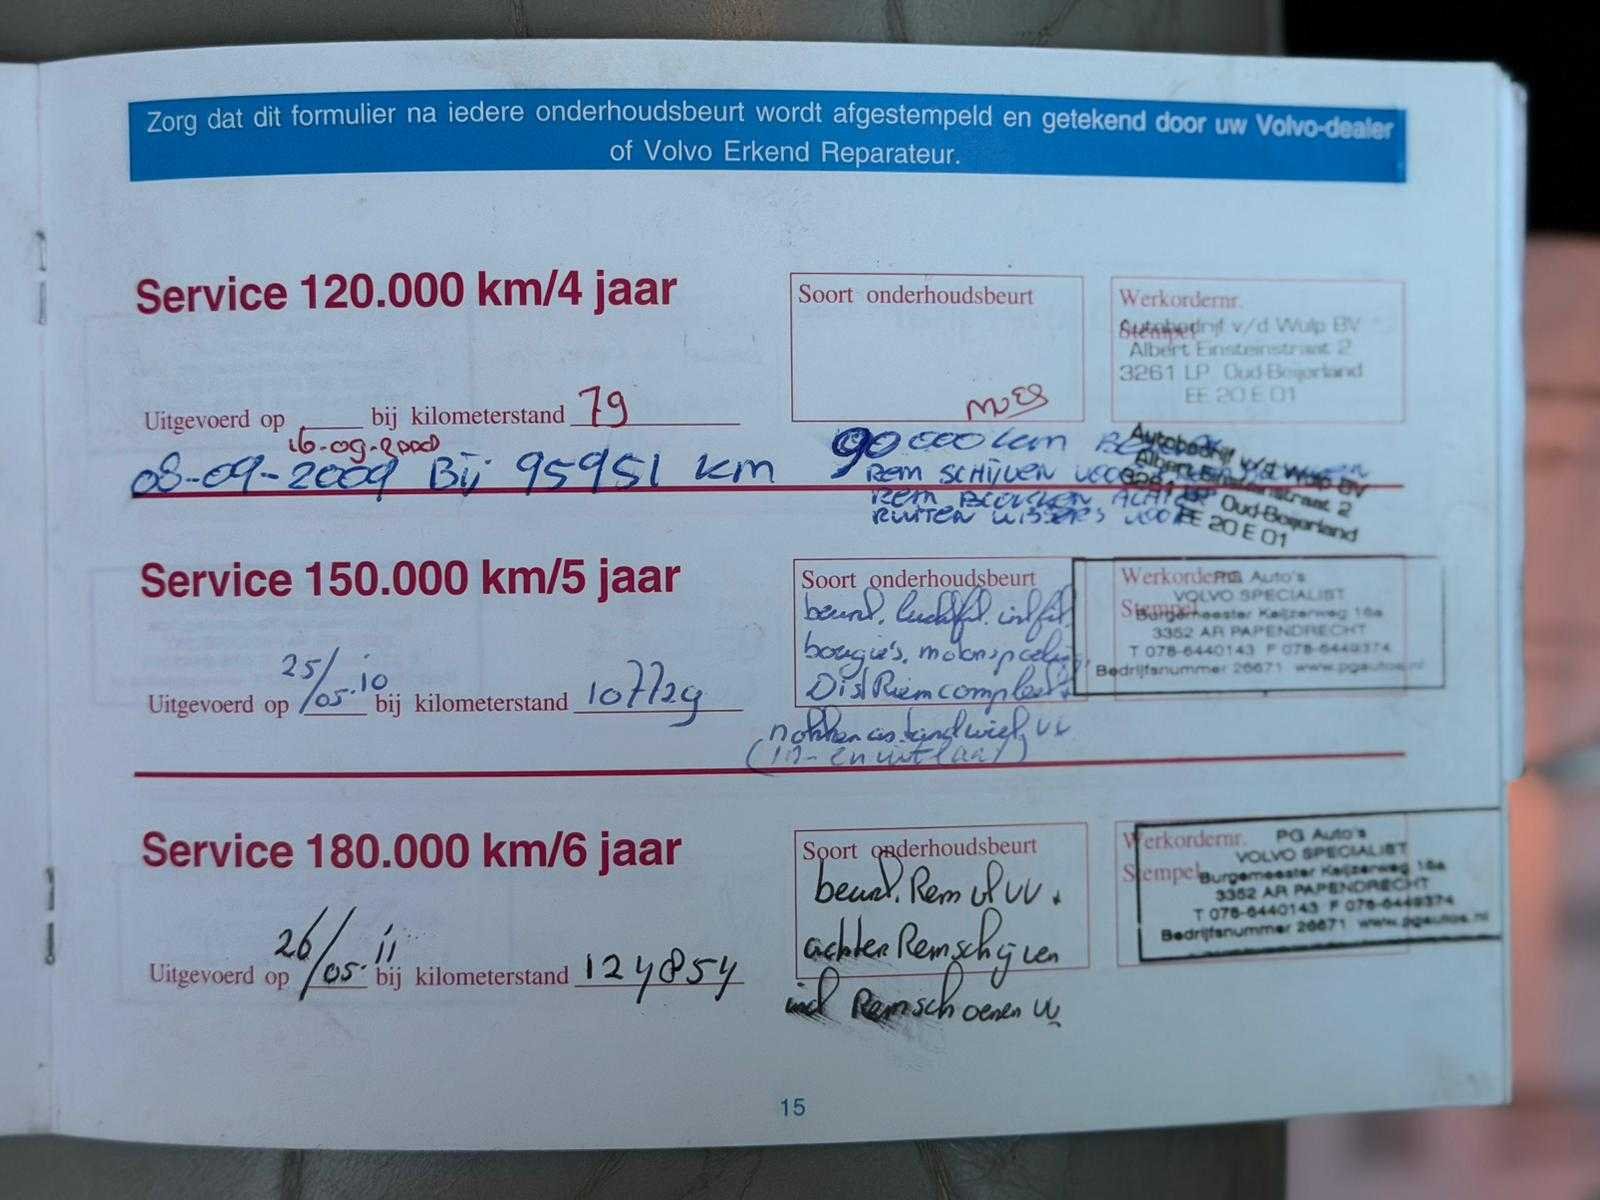 Zorg dat dit formulier na iedere onderhoudsbeurt wordt afgestempeld en getekend door uw Volvo-dealer
of Volvo Erkend Reparateur.
Service 120.000 km/4 jaar
Soort onderhoudsbeurt
Werkordernr.
Stempel
Autobedrijf v/d Wulp BV
Albert Einsteinstraat 2
3261 LP Oud-Beijerland
EE 20 E 01
Uitgevoerd op bij kilometerstand 79
08-09-2009 Bij 95951 km
90000 km
REM SCHIJVEN
REM BLOKKEN
RUITEN WISSERS VOOR
Autobedrijf v/d Wulp BV
Albert Einsteinstraat 2
3261 LP Oud-Beijerland
EE 20 E 01
Service 150.000 km/5 jaar
Soort onderhoudsbeurt
beurt, luchtfil.
bougie's,
Dist Riem compleet
nokkenastandwiel
(in- en uitlaat)
Werkordernr.
Stempel
PG Auto's
VOLVO SPECIALIST
Burgemeester Keijzerweg 16a
3352 AR PAPENDRECHT
T 078-6440143 F 078-6449374
Bedrijfsnummer 26671 www.pgautos.nl
Uitgevoerd op 25/05-10 bij kilometerstand 107729
Service 180.000 km/6 jaar
Soort onderhoudsbeurt
beurt. Rem
achter Remschijven
incl Remschoenen
Werkordernr.
Stempel
PG Auto's
VOLVO SPECIALIST
Burgemeester Keijzerweg 16a
3352 AR PAPENDRECHT
T 078-6440143 F 078-6449374
Bedrijfsnummer 26671 www.pgautos.nl
Uitgevoerd op 26/05-11 bij kilometerstand 124854
15